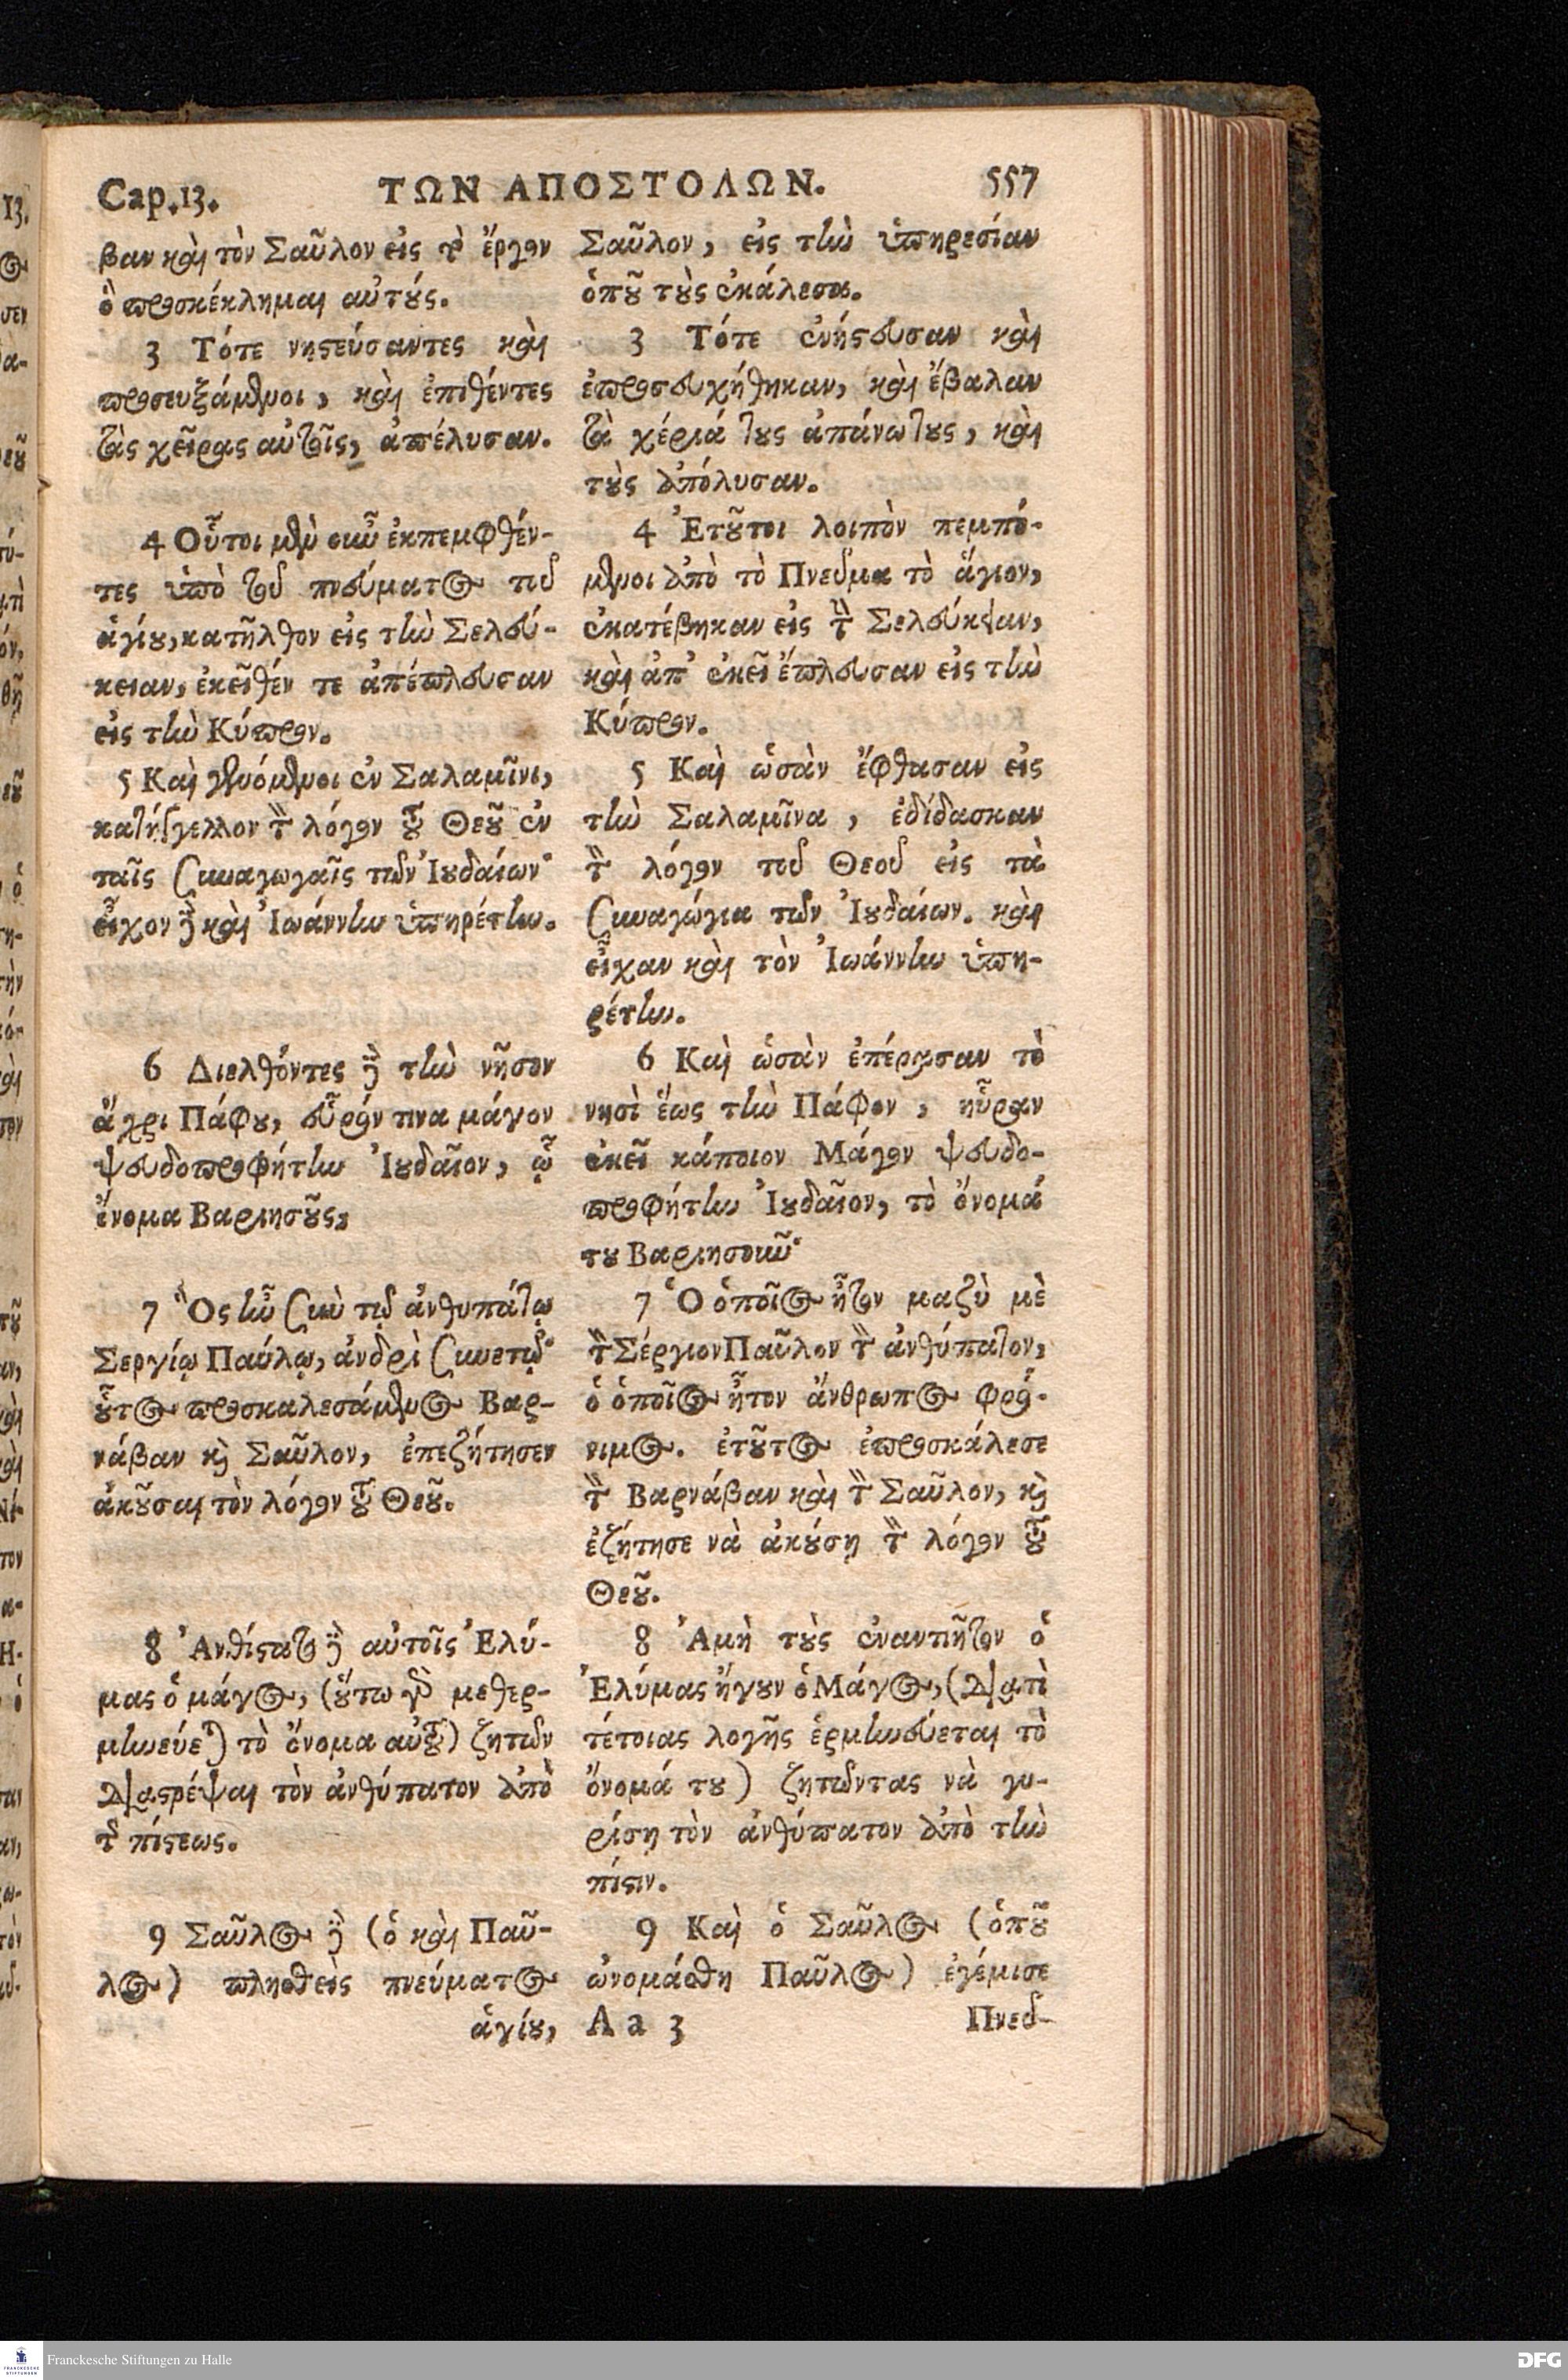 Cap.13. ΤΩΝ ΑΠΟΣΤΟΛΩΝ. 557
βαν καὶ τὸν Σαῦλον εἰς τὸ ἔργον
ὃ προσκέκλημαι αὐτούς.
3 Τότε νηστεύσαντες καὶ
προσευξάμενοι, καὶ ἐπιθέντες
τὰς χεῖρας αὐτοῖς, ἀπέλυσαν.
4 Οὗτοι μὲν οὖν ἐκπεμφθέν-
τες ὑπὸ τοῦ πνεύματος τοῦ
ἁγίου, κατῆλθον εἰς τὴν Σελεύ-
κειαν, ἐκεῖθέν τε ἀπέπλευσαν
εἰς τὴν Κύπρον.
5 Καὶ γενόμενοι ἐν Σαλαμῖνι,
κατήγγελλον τὸν λόγον τοῦ Θεοῦ ἐν
ταῖς συναγωγαῖς τῶν Ἰουδαίων·
εἶχον δὲ καὶ Ἰωάννην ὑπηρέτην.
6 Διελθόντες δὲ τὴν νῆσον
ἄχρι Πάφου, εὗρόν τινα μάγον
ψευδοπροφήτην Ἰουδαῖον, ᾧ
ὄνομα Βαριησοῦς,
7 Ὃς ἦν σὺν τῷ ἀνθυπάτῳ
Σεργίῳ Παύλῳ, ἀνδρὶ συνετῷ·
οὗτος προσκαλεσάμενος Βαρ-
νάβαν καὶ Σαῦλον, ἐπεζήτησεν
ἀκοῦσαι τὸν λόγον τοῦ Θεοῦ.
8 Ἀνθίστατο δὲ αὐτοῖς Ἐλύ-
μας ὁ μάγος, (οὕτω γὰρ μεθερ-
μηνεύεται τὸ ὄνομα αὐτοῦ) ζητῶν
διαστρέψαι τὸν ἀνθύπατον ἀπὸ
τῆς πίστεως.
9 Σαῦλος δὲ (ὁ καὶ Παῦ-
λος) πλησθεὶς πνεύματος
ἁγίου,
Σαῦλον, εἰς τὴν ὑπηρεσίαν
ὁποῦ τοὺς ἐκάλεσα.
3 Τότε ἐνήστευσαν καὶ
ἐπροσευχήθηκαν, καὶ ἔβαλαν
τὰ χέριά τους ἀπάνω τους, καὶ
τοὺς ἀπόλυσαν.
4 Ἐτοῦτοι λοιπὸν πεμπό-
μενοι ἀπὸ τὸ Πνεῦμα τὸ ἅγιον,
ἐκατέβηκαν εἰς τὴν Σελεύκειαν,
καὶ ἀπ' ἐκεῖ ἔπλευσαν εἰς τὴν
Κύπρον.
5 Καὶ ὡσὰν ἔφθασαν εἰς
τὴν Σαλαμῖνα, ἐδίδασκαν
τὸν λόγον τοῦ Θεοῦ εἰς τὰ
συναγώγια τῶν Ἰουδαίων. καὶ
εἶχαν καὶ τὸν Ἰωάννην ὑπη-
ρέτην.
6 Καὶ ὡσὰν ἐπέρασαν τὸ
νησὶ ἕως τὴν Πάφον, ηὗραν
ἐκεῖ κάποιον Μάγον ψευδο-
προφήτην Ἰουδαῖον, τὸ ὄνομά
του Βαριησοῦν·
7 Ὁ ὁποῖος ἦτον μαζὺ μὲ
τὸν Σέργιον Παῦλον τὸν ἀνθύπατον,
ὁ ὁποῖος ἦτον ἄνθρωπος φρό-
νιμος. ἐτοῦτος ἐπροσκάλεσε
τὸν Βαρνάβαν καὶ τὸν Σαῦλον, καὶ
ἐζήτησε νὰ ἀκούσῃ τὸν λόγον τοῦ
Θεοῦ.
8 Ἀμὴ τοὺς ἐναντιῆτον ὁ
Ἐλύμας ἤγουν ὁ Μάγος, (διατὶ
τέτοιας λογῆς ἑρμηνεύεται τὸ
ὄνομά του) ζητῶντας νὰ γυ-
ρίσῃ τὸν ἀνθύπατον ἀπὸ τὴν
πίστιν.
9 Καὶ ὁ Σαῦλος (ὁποῦ
ὠνομάσθη Παῦλος) ἐγέμισε
A a 3 Πνεῦ-
Franckesche Stiftungen zu Halle
DFG